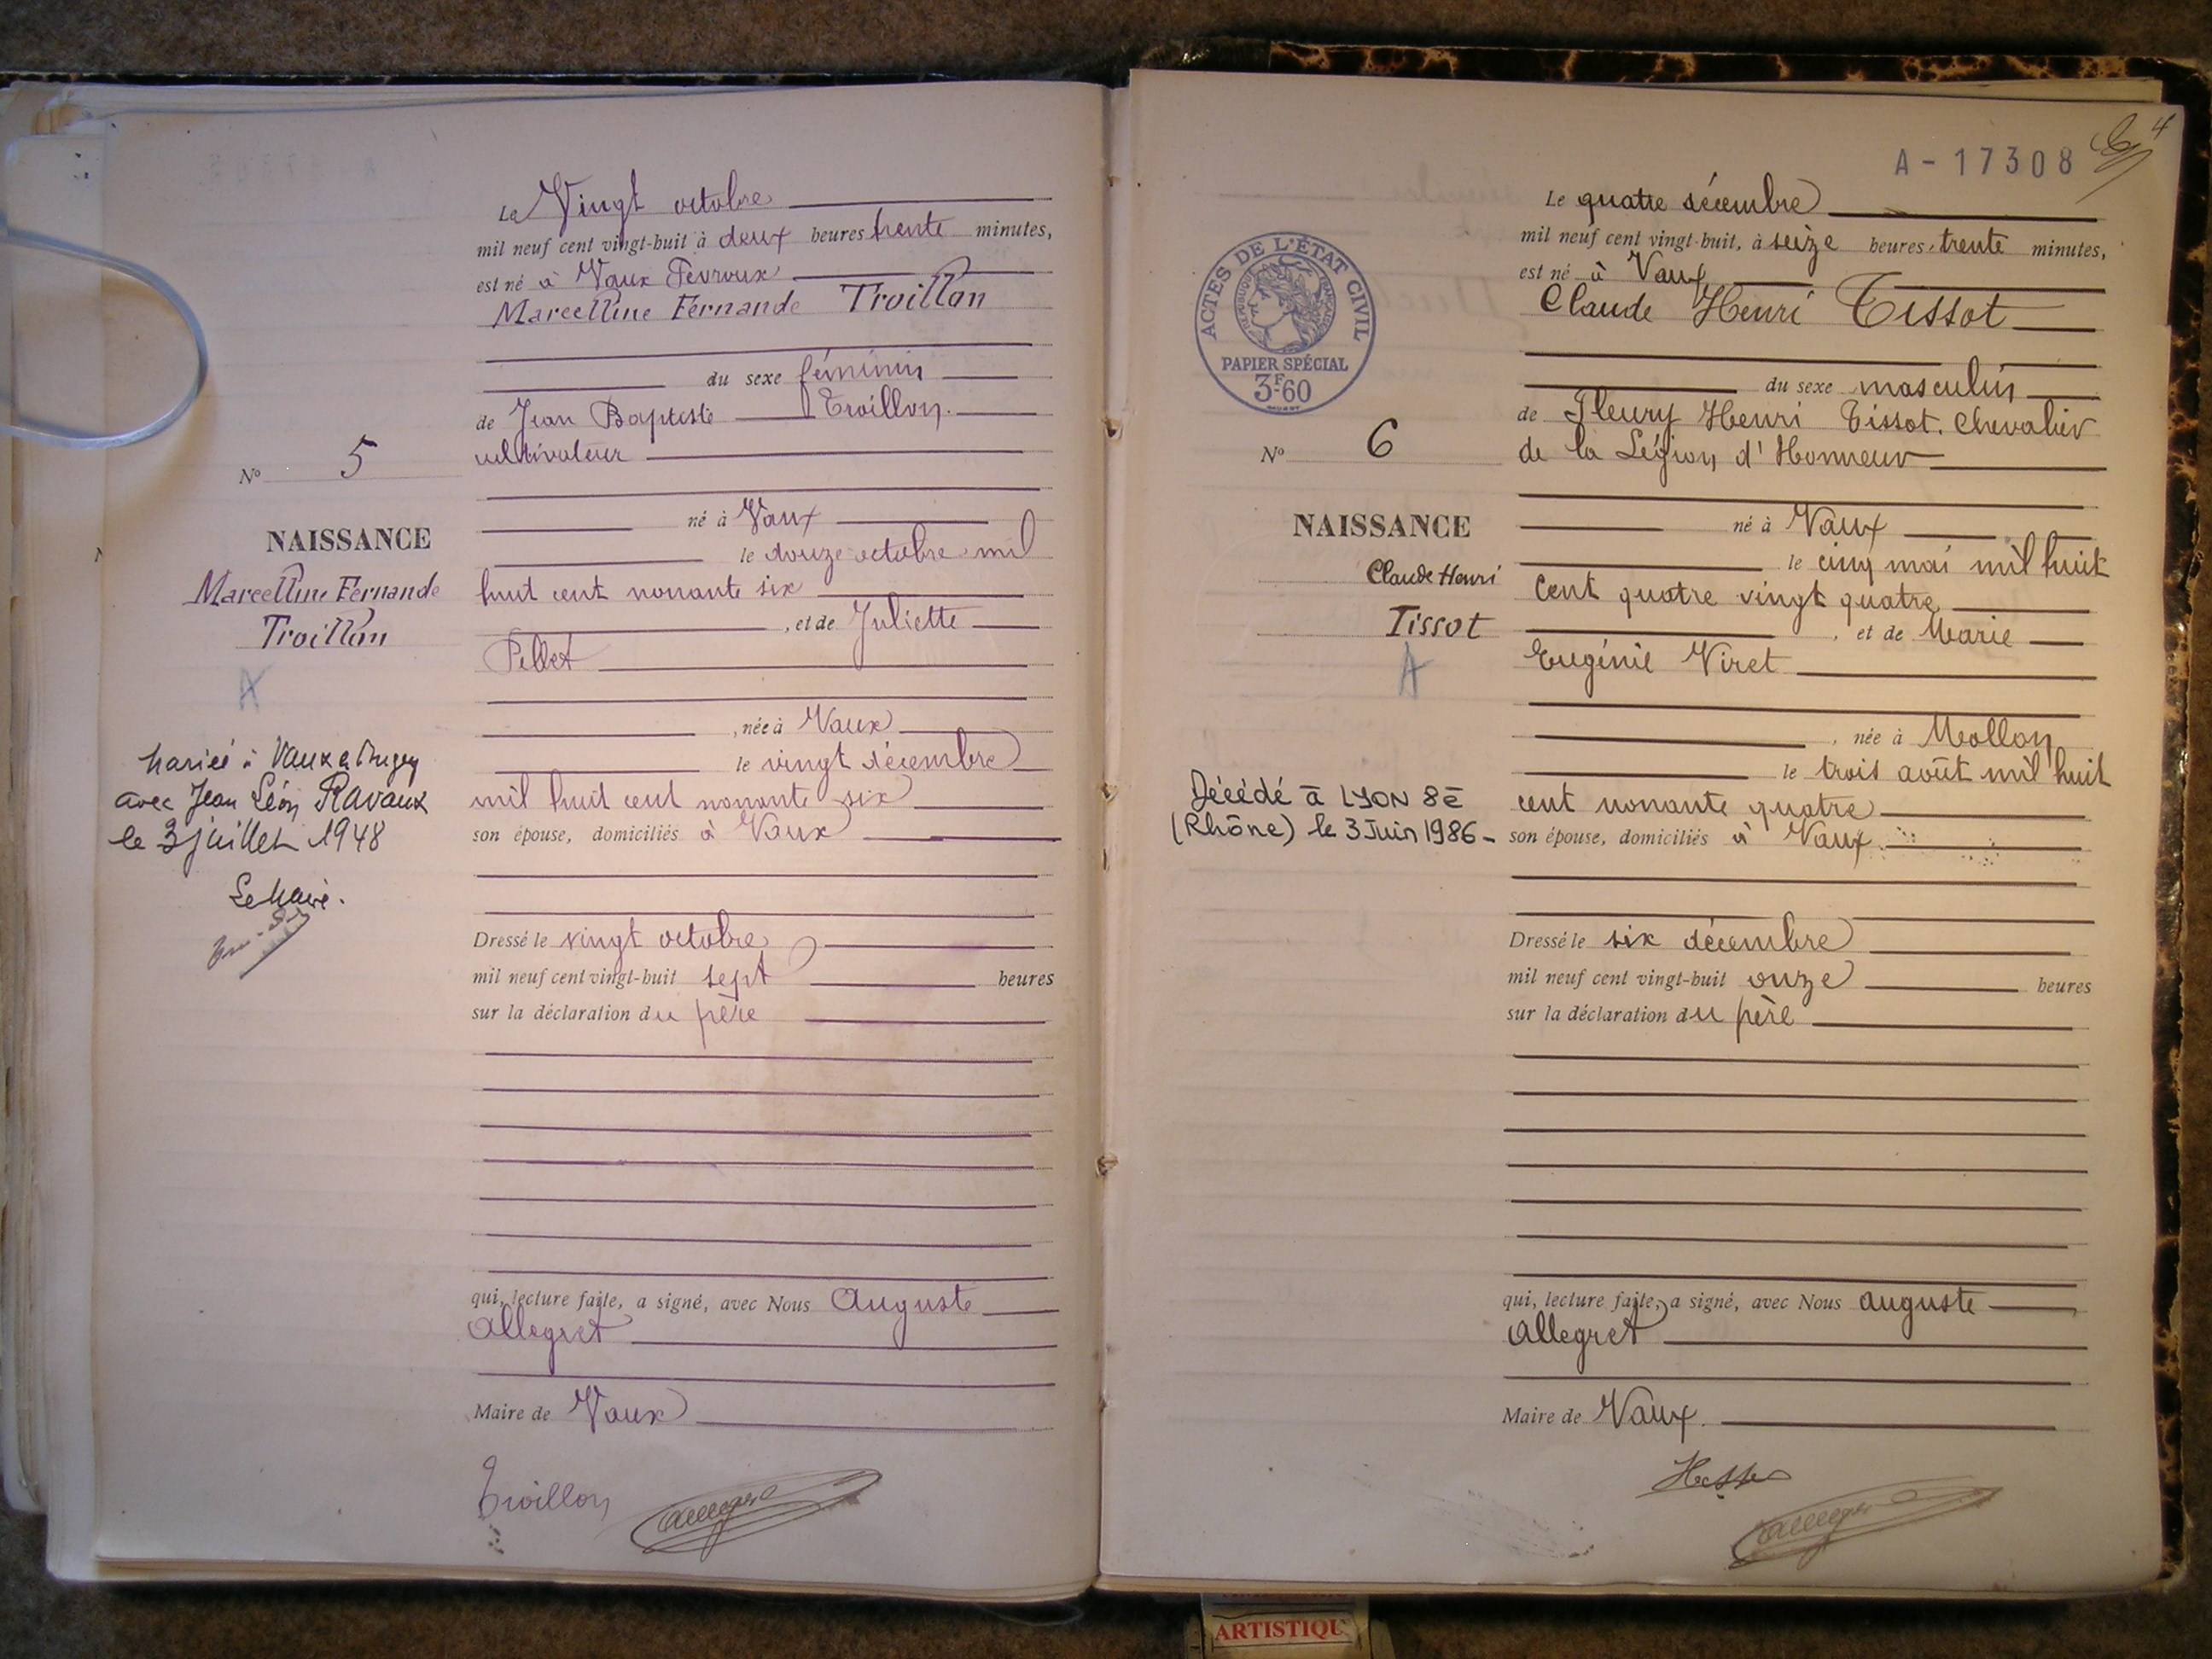 Le Vingt octobre
mil neuf cent vingt-huit à deux heures trente minutes,
est né à Vaux Févroux
Marcelline Fernande Troillon
du sexe féminin
de Jean Baptiste Troillon.
cultivateur
N° 5
né à Vaux
NAISSANCE
le douze octobre mil
Marcelline Fernande
huit cent nonante six
Troillon
, et de Juliette
Pellet
A
, née à Vaux
Mariée à Vaux e Bugey
le vingt décembre
avec Jean Léon Ravaux
mil huit cent nonante six
le 3 juillet 1948
son épouse, domiciliés à Vaux
Le Maire.
Dressé le vingt octobre
mil neuf cent vingt-huit sept heures
sur la déclaration du père
qui, lecture faite, a signé, avec Nous Auguste
Allegret
Maire de Vaux
Troillon
4
A - 17308
Le quatre décembre
mil neuf cent vingt-huit, à seize heures trente minutes,
est né à Vaux
Claude Henri Tissot
ACTES DE L'ÉTAT CIVIL
RÉPUBLIQUE FRANÇAISE
PAPIER SPÉCIAL
3F60
du sexe masculin
de Fleury Henri Tissot. Chevalier
N° 6
de la Légion d'Honneur
NAISSANCE
né à Vaux
le cinq mai mil huit
Claude Henri
cent quatre vingt quatre
Tissot
, et de Marie
A
Eugénie Viret
, née à Mollon
le trois août mil huit
Décédé à LYON 8è
cent nonante quatre
(Rhône) le 3 Juin 1986 -
son épouse, domiciliés à Vaux.
Dressé le six décembre
mil neuf cent vingt-huit onze heures
sur la déclaration du père
qui, lecture faite, a signé, avec Nous Auguste
Allegret
Maire de Vaux.
ARTISTIQU